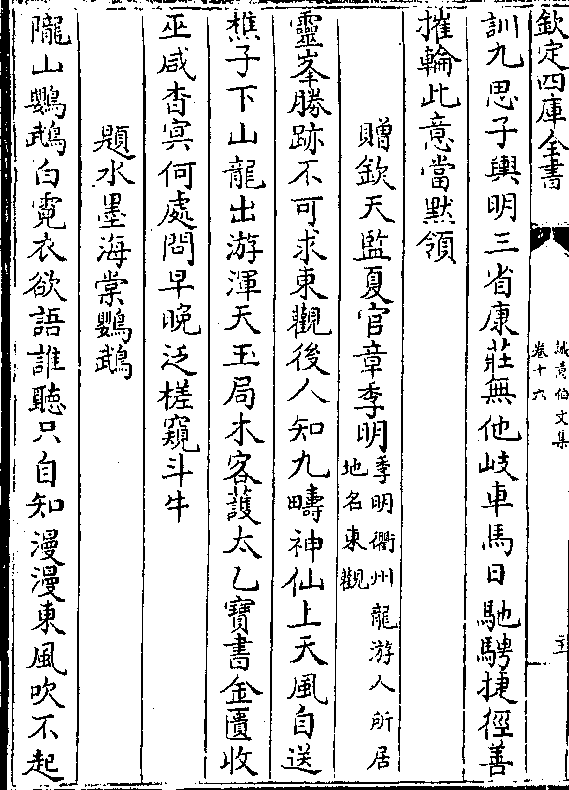 欽定四庫全書
誠意伯文集
卷十六
訓九思子輿明三省康莊無他岐車馬日馳騁捷徑善
摧輪此意當黙領
贈欽天監夏官章季明季明衢州龍游人所居地名東觀
靈峯勝跡不可求東觀後人知九疇神仙上天風自送
樵子下山龍出游渾天玉局木客護太乙寶書金匱收
巫咸杳㝠何處問早晚泛槎窺斗牛
題水墨海棠鸚鵡
隴山鸚鵡白霓衣欲語誰聽只自知漫漫東風吹不起